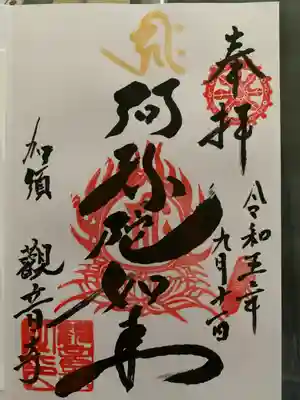 奉拝
令和五年
九月十二日
阿弥陀如来
加須
觀音寺